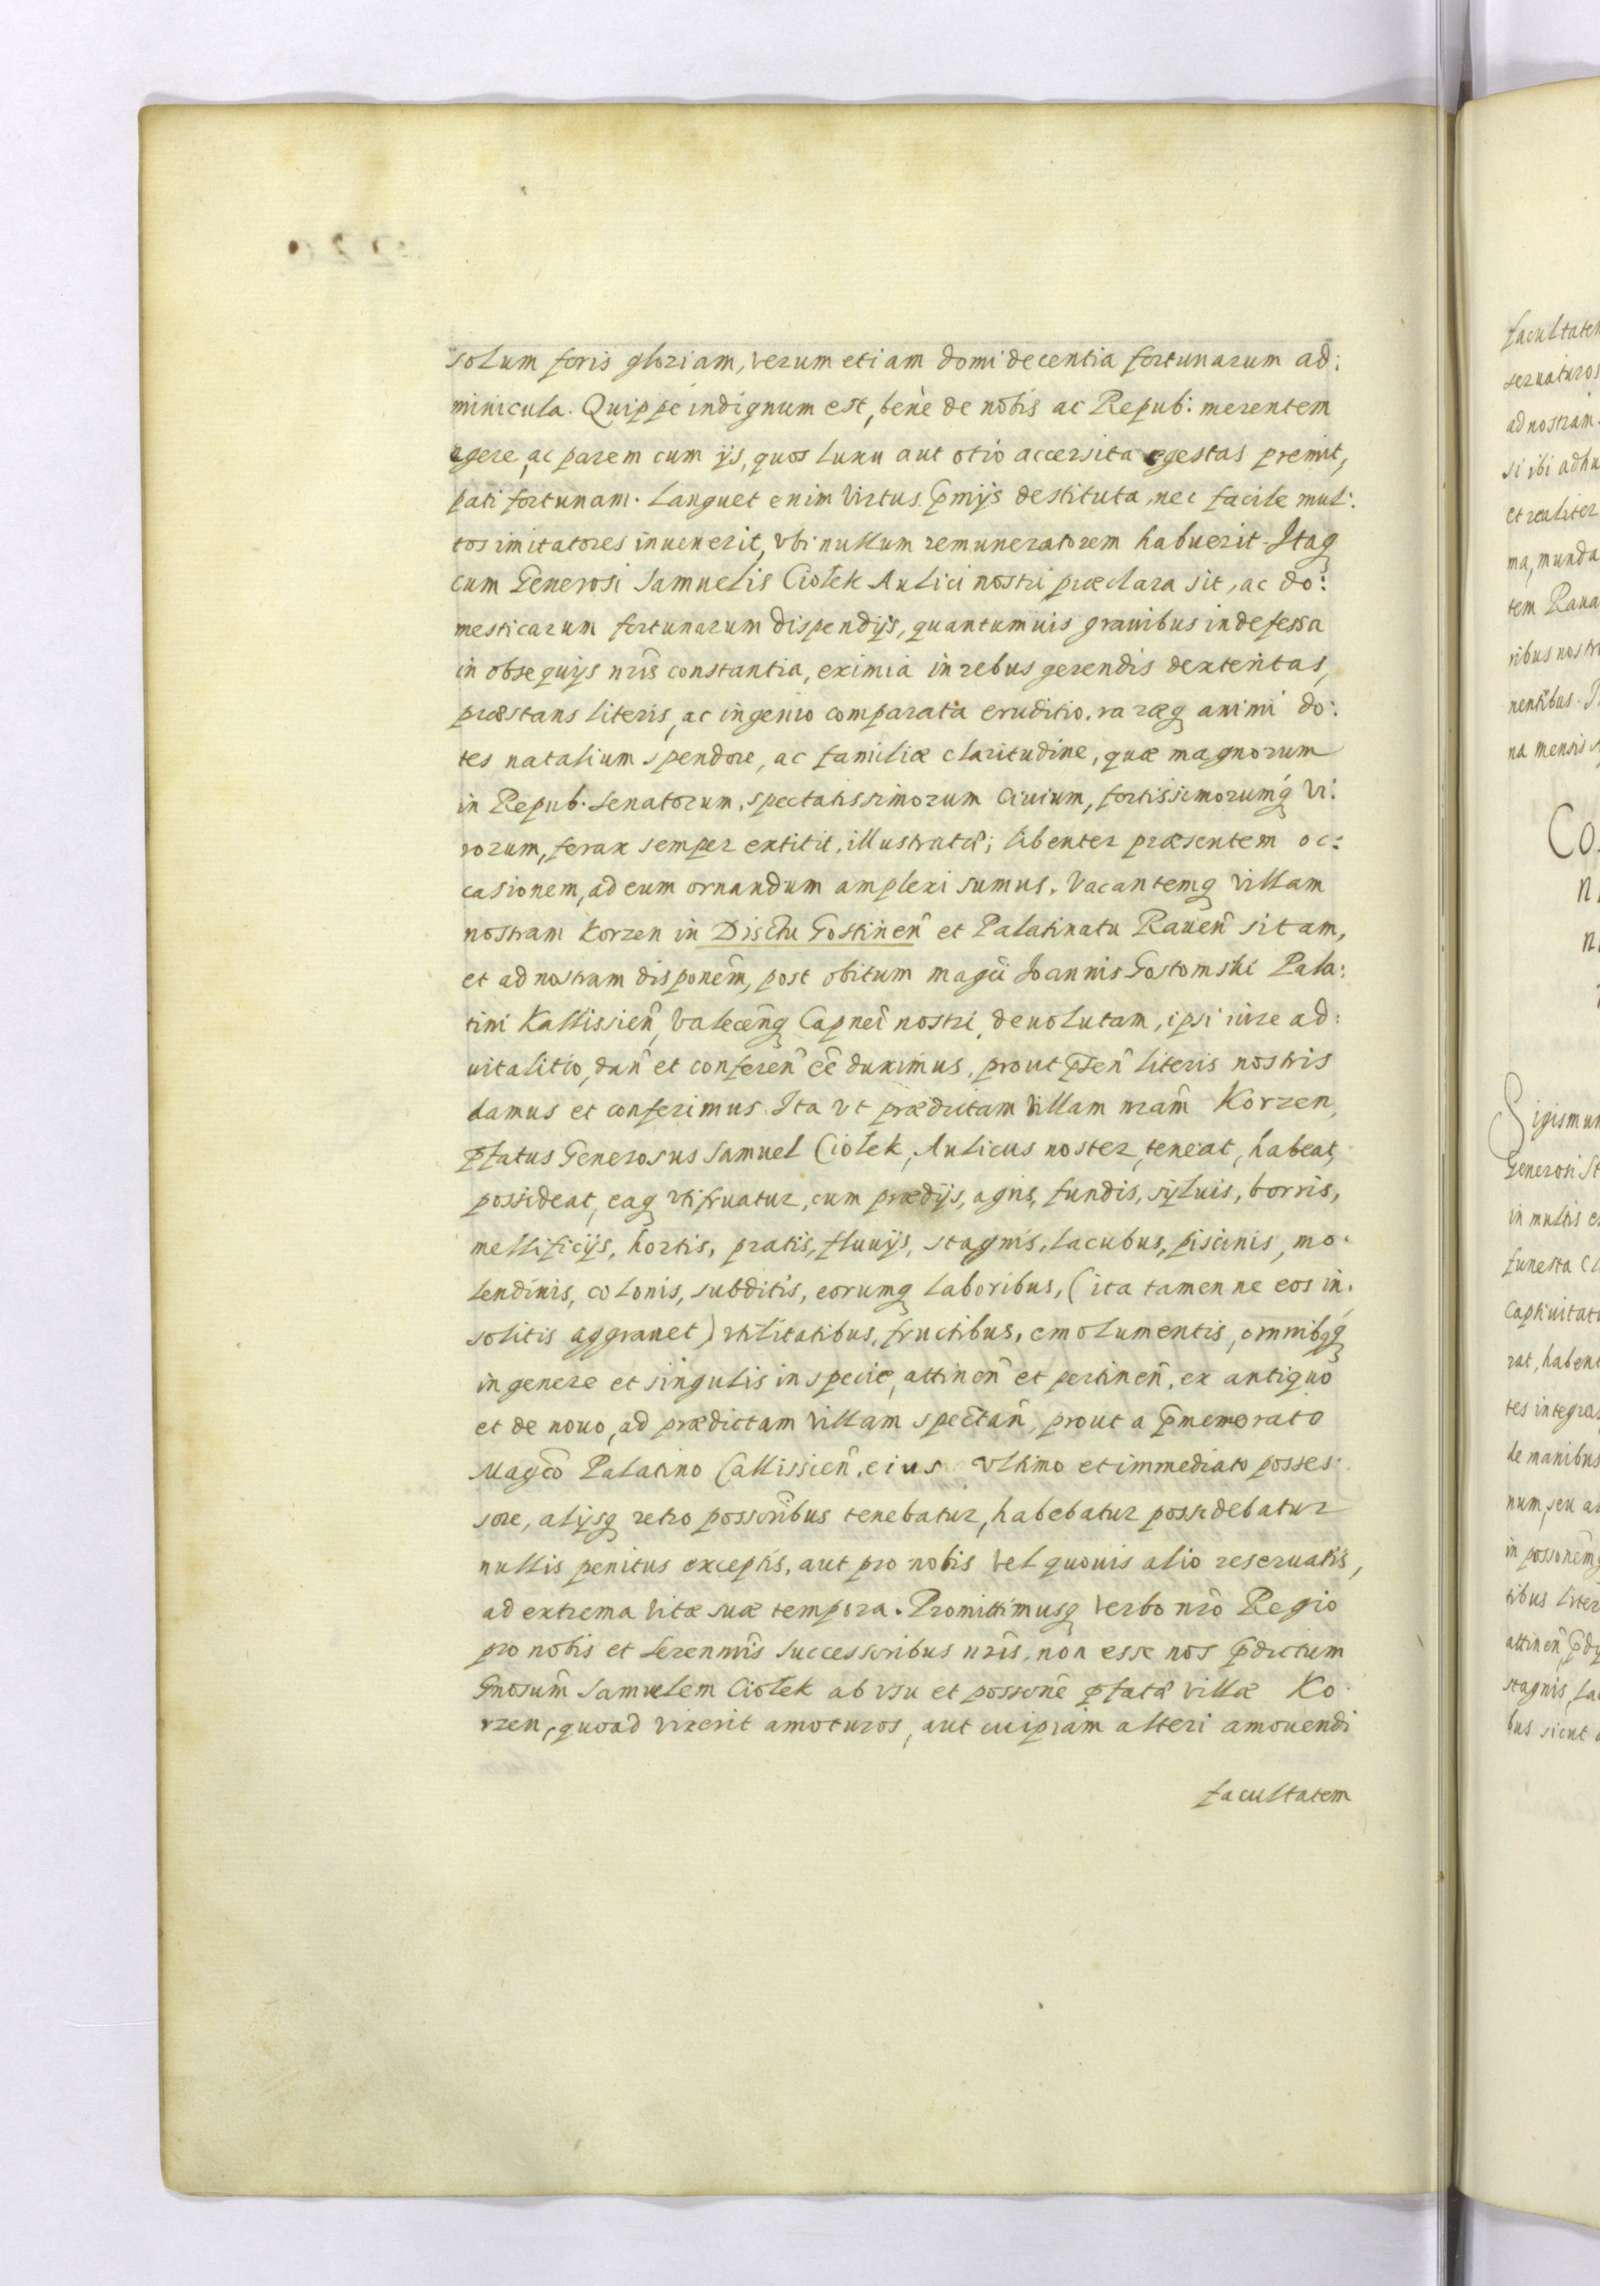 solum foris gloriam, verum etiam domi decentia fortunarum ad:
minicula. Quippe indignum est, benè de nobis ac Repub: merentem
egere, ac parem cum ijs, quos luxu aut otio accersita egestas premit,
pati fortunam. Languet enim virtus p̄mijs destituta, nec facile mul:
tos imitatores inuenerit, vbi nullum remuneratorem habuerit. Itaq
cum Generosi Samuelis Ciołek Aulici nostri præclara sit, ac do:
mesticarum fortunarum dispendijs, quantumuis grauibus indefessa
in obsequijs nr̃is constantia, eximia in rebus gerendis dexteritas,
præstans literis, ac ingenio comparata eruditio, raræq animi do:
tes natalium spendore, ac familiæ claritudine, quæ magnorum
in Repub. Senatorum, spectatissimorum Ciuium, fortissimorumq́ vi:
rorum, ferax semper extitit, illustratæ; libenter præsentem oc:
casionem, ad eum ornandum amplexi sumus. Vacantemq villam
nostram Korzen in Dis͠ctu Gostinen̄ et Palatinatu Rauen̄ sitam,
et ad nostram disponem̄, post obitum mag̃ci Joannis Gostomski Pala:
tini Kallissien̄, Valecen̄q Capnei nostri, deuolutam, ipsi iure ad:
uitalitio, dan̄ et conferen̄ ee͠ duximus, prout p̄sen̄ literis nostris
damus et conferimus. Ita vt prædictam villam nr̃am Korzen,
p̄fatus Generosus Samuel Ciołek, Aulicus noster, teneat, habeat,
possideat, eaq vtifruatur, cum prædijs, agris, fundis, syluis, borris,
mellificijs, hortis, pratis, fluuijs, stagnis, lacubus, piscinis, mo:
lendinis, colonis, subditis, eorumq laboribus, (ita tamen ne eos in:
solitis aggrauet) vtilitatibus, fructibus, emolumentis, omnibq́q
in genere et singulis in specie, attinen̄ et pertinen̄, ex antiquo
et de nouo, ad prædictam villam spectan̄, prout a p̄memorato
Mag͠co Palatino Callissien̄, eius vltimo et immediato posses:
sore, alijsq retro possoribus tenebatur, habebatur possidebatur
nullis penitus exceptis, aut pro nobis vel quouis alio reseruatis,
ad extrema vitæ suæ tempora. Promittimusq verbo nr̃o Regio
pro nobis et Seren̄mis successoribus nr̃is, non esse nos p̄dictum
Gnosum̄ Samuelem Ciołek ab vsu et possone͠ p̄fatæ villæ Ko:
rzen, quoad vixerit amoturos, aut cuipiam alteri amouendi
facultatem
facultatem
seruaturos
ad nostram
si ibi adhu
et realiter
ma, munda
tem Raua
ribus nostr
nentibus.
na mensis
Co
Sigismun
Generosi St
in multis e
funesta Cl
Captiuitatu
rat, habent
tes integras
de manibus
num, seu a
in possonem̄q
tibus liter
attinen̄, p̄dy
stagnis, la
bus sicut